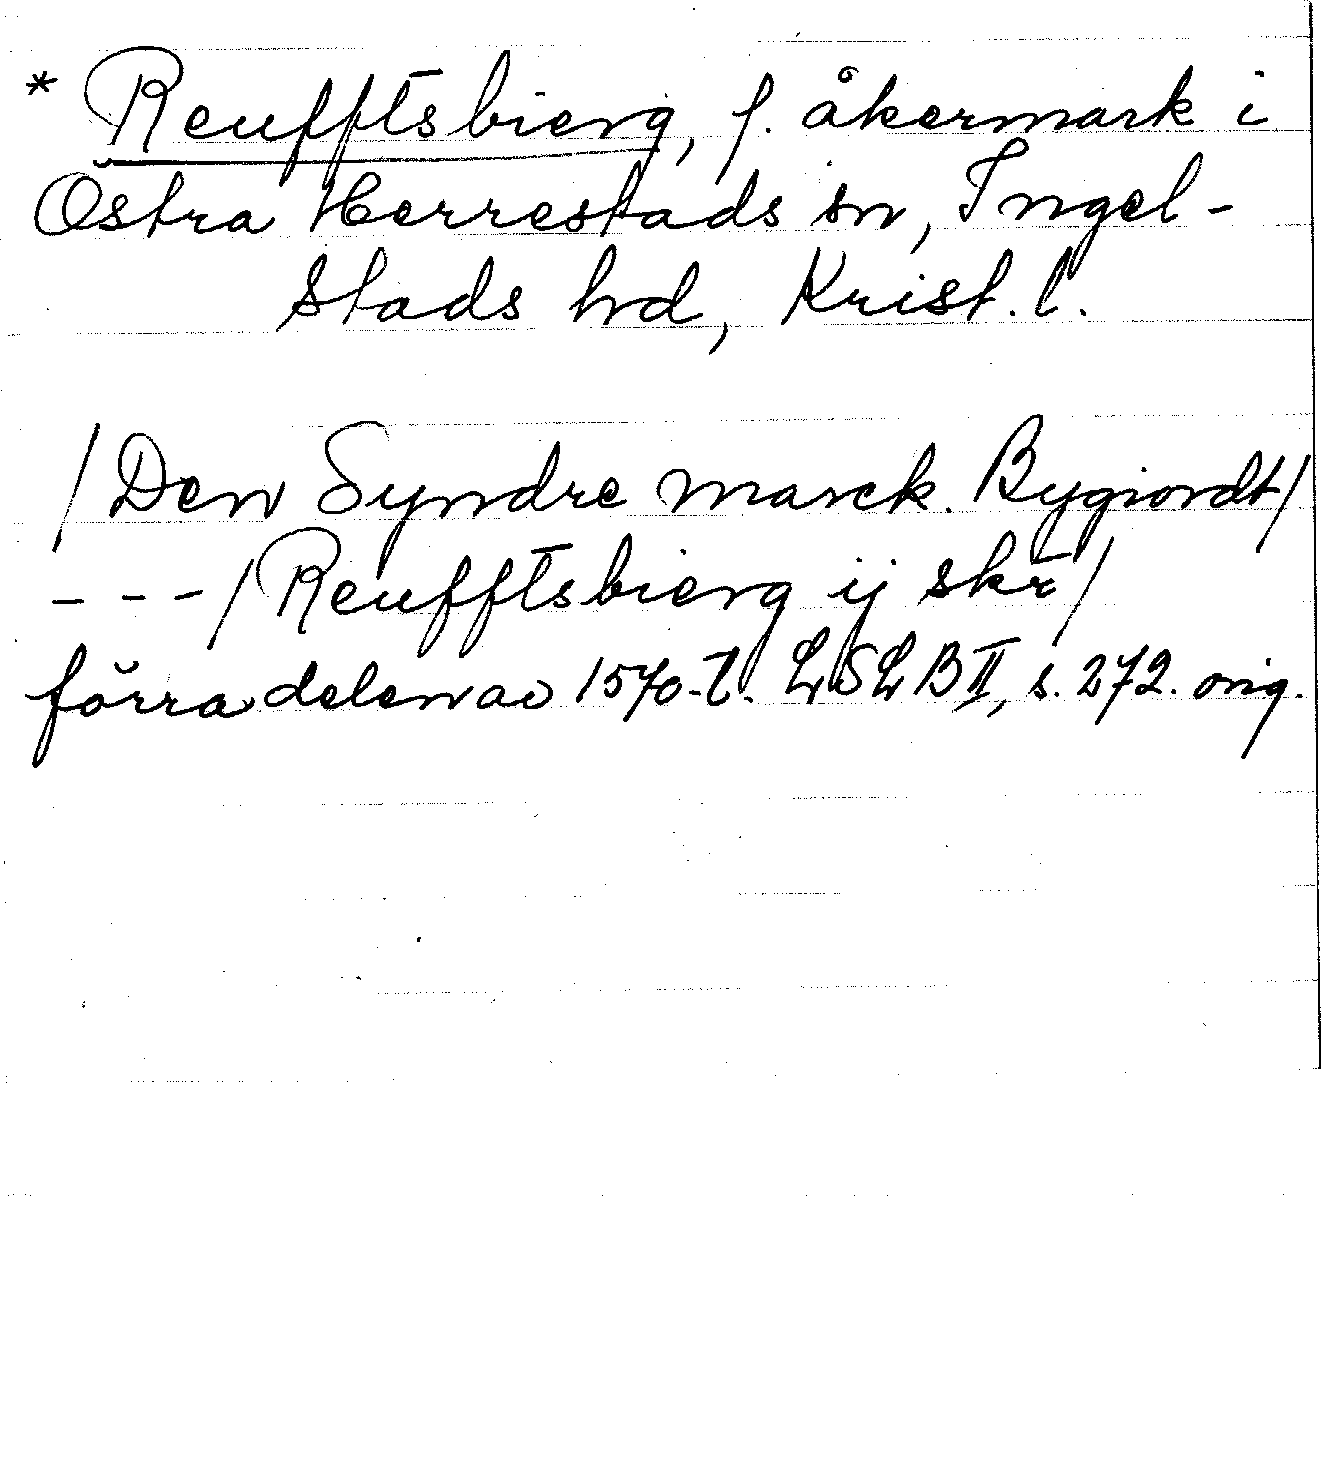 * Reufftsbierg, f. åkermark i
Östra Herrestads sn, Ingel-
stads hd, Krist. l.
/Den Syndre marck. Bygiordt/
---/Reufftsbierg ij skr̄/
förra delen av 1570-t. LSLB II, s. 272. orig.